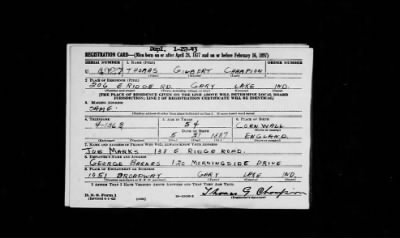 Dupl. 1-23-43
REGISTRATION CARD—(Men born on or after April 28, 1877 and on or before February 16, 1897)
SERIAL NUMBER 1. NAME (Print) ORDER NUMBER
U THOMAS GILBERT CHAMPION
2. PLACE OF RESIDENCE (Print)
206 E RIDGE RD. GARY LAKE IND.
[THE PLACE OF RESIDENCE GIVEN ON THE LINE ABOVE WILL DETERMINE LOCAL BOARD
JURISDICTION; LINE 2 OF REGISTRATION CERTIFICATE WILL BE IDENTICAL]
3. MAILING ADDRESS
SAME.
4. TELEPHONE 5. AGE IN YEARS 6. PLACE OF BIRTH
54 CORNWALL
DATE OF BIRTH
5 31 1887 ENGLAND.
7. NAME AND ADDRESS OF PERSON WHO WILL ALWAYS KNOW YOUR ADDRESS
JOE MARKS 138 E RIDGE ROAD.
8. EMPLOYER'S NAME AND ADDRESS
GEORGE 120 MORNINGSIDE DRIVE
9. PLACE OF EMPLOYMENT OR BUSINESS
1051 BROADWAY GARY LAKE IND
I AFFIRM THAT I HAVE VERIFIED ABOVE ANSWERS AND THAT THEY ARE TRUE.
D. S. S. Form 1
Thomas G Champion